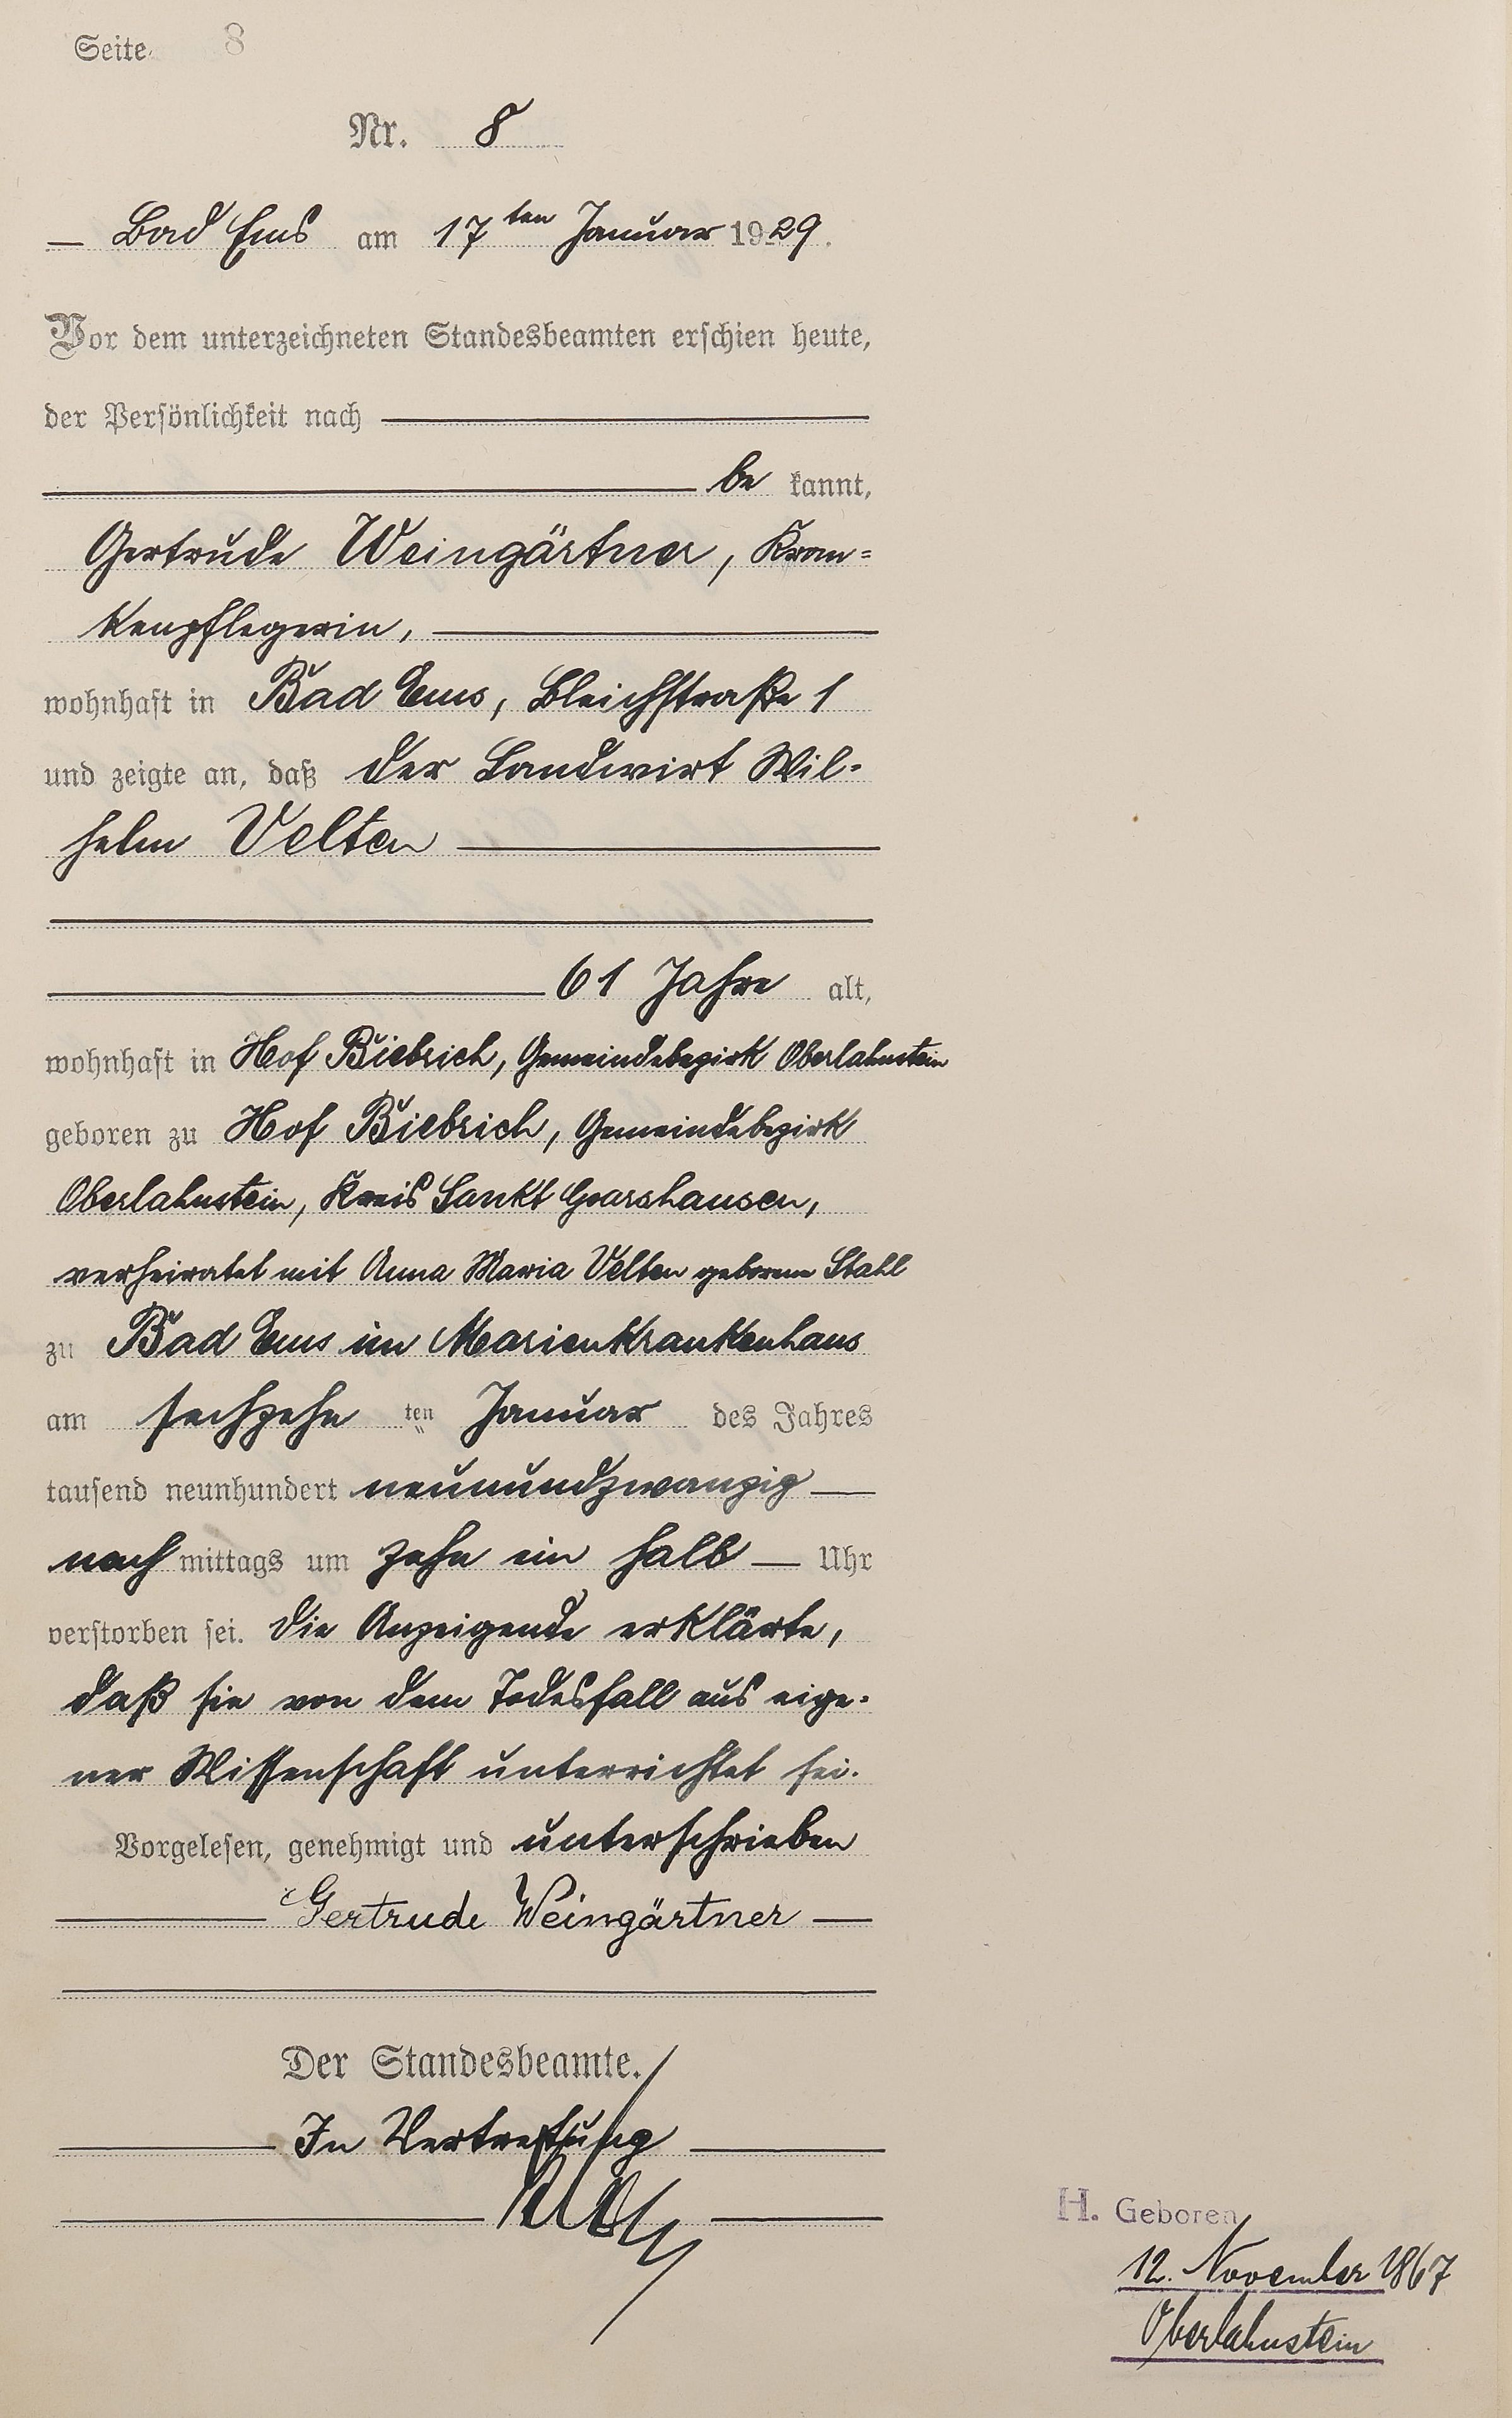 Seite 8
Nr. 8
Bad Ems am 17ten Januar 1929.
Vor dem unterzeichneten Standesbeamten erschien heute,
der Persönlichkeit nach
be kannt,
Gertrude Weingärtner, Kran=
kenpflegerin,
wohnhaft in Bad Ems, Bleichstraße 1
und zeigte an, daß der Landwirt Wil-
helm Velten
61 Jahre alt,
wohnhaft in Hof Biebrich, Gemeindebezirk Oberlahnstein
geboren zu Hof Biebrich, Gemeindebezirk
Oberlahnstein, Kreis Sankt Goarshausen,
verheiratet mit Anna Maria Velten geborene Stahl
zu Bad Ems im Marienkrankenhaus
am sechzehn ten Januar des Jahres
tausend neunhundert neunundzwanzig
nach mittags um zehn ein halb Uhr
verstorben sei. Die Anzeigende erklärte,
daß sie von dem Todesfall aus eige-
ner Wissenschaft unterrichtet sei.
Vorgelesen, genehmigt und unterschrieben
Gertrude Weingärtner
Der Standesbeamte.
In Vertretung
H. Geboren
12. November 1867
Oberlahnstein